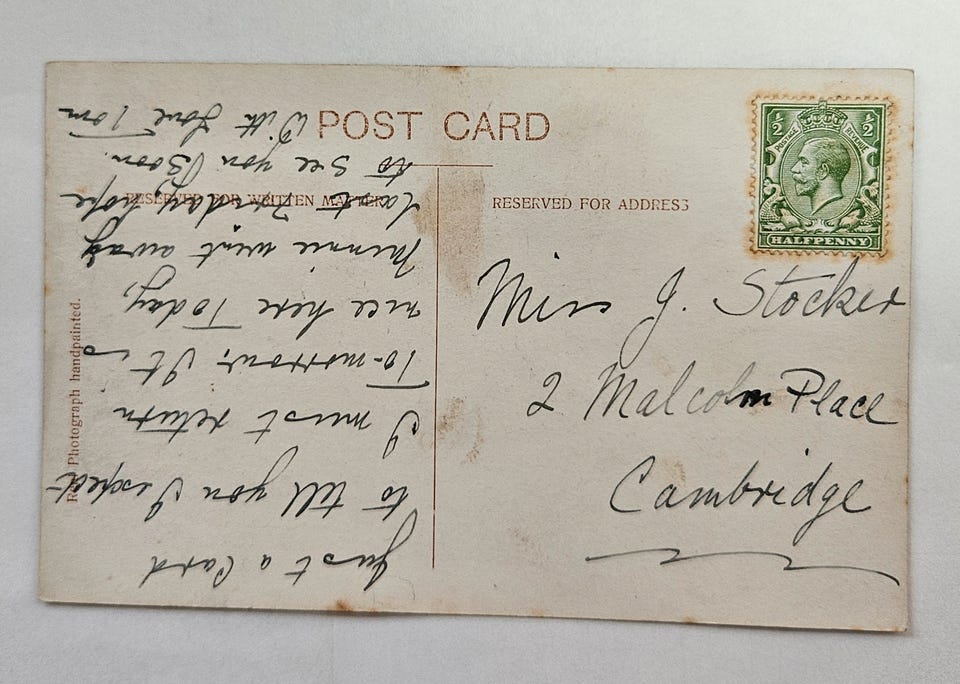 POST CARD
RESERVED FOR WRITTEN MATTER
RESERVED FOR ADDRESS
Real Photograph handpainted.
1/2 1/2
POSTAGE REVENUE
HALFPENNY
Miss J. Stocker
2 Malcolm Place
Cambridge
Just a Card
to tell you I expect
I must return
To-morrow. It is
nice here Today,
Minnie went away
last Friday, hope
to see you Soon.
With Love Tom